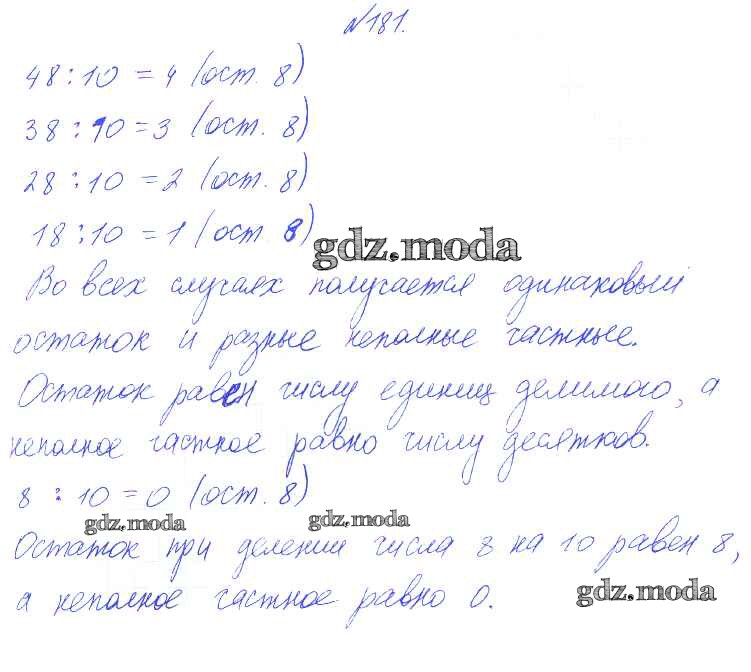 №181.
48 : 10 = 4 (ост. 8)
38 : 10 = 3 (ост. 8)
28 : 10 = 2 (ост. 8)
18 : 10 = 1 (ост. 8)
gdz.moda
Во всех случаях получается одинаковый
остаток и разные неполные частные.
Остаток равен числу единиц делимого, а
неполное частное равно числу десятков.
8 : 10 = 0 (ост. 8)
gdz.moda gdz.moda
Остаток при делении числа 8 на 10 равен 8,
а неполное частное равно 0.
gdz.moda